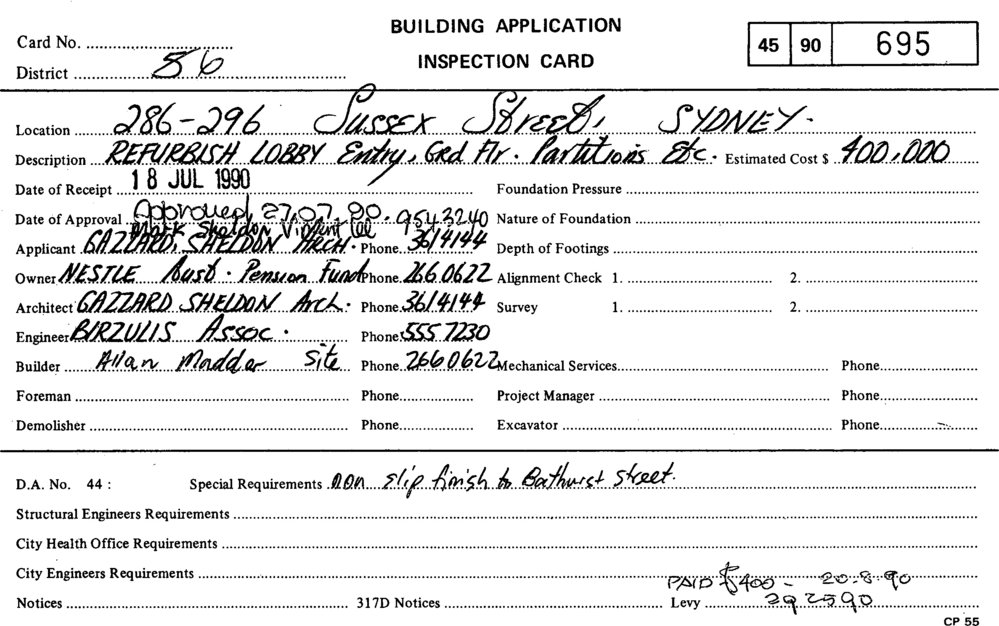 BUILDING APPLICATION
INSPECTION CARD
Card No.
District 56
45 90 695
Location 286-296 SUSSEX Street, SYDNEY.
Description REFURBISH LOBBY Entry, Grd Flr. Partitions Etc. Estimated Cost $ 400,000
Date of Receipt 18 JUL 1990 Foundation Pressure
Date of Approval Approved 27.07.90. 9543240 Nature of Foundation
Mark Sheldon Vincent Lee
Applicant GAZZARD, SHELDON ARCH. Phone 3614144 Depth of Footings
Owner NESTLE Aust. Pension Fund Phone 266 0622 Alignment Check 1. 2.
Architect GAZZARD SHELDON Arch. Phone 3614144 Survey 1. 2.
Engineer BIRZULIS Assoc. Phone 555 7230
Builder Allan Madder Site Phone 266 0622 Mechanical Services Phone
Foreman Phone Project Manager Phone
Demolisher Phone Excavator Phone
D.A. No. 44 : Special Requirements non slip finish to Bathurst Street.
Structural Engineers Requirements
City Health Office Requirements
City Engineers Requirements PAID $400 - 20.8.90
Notices 317D Notices Levy 292590
CP 55